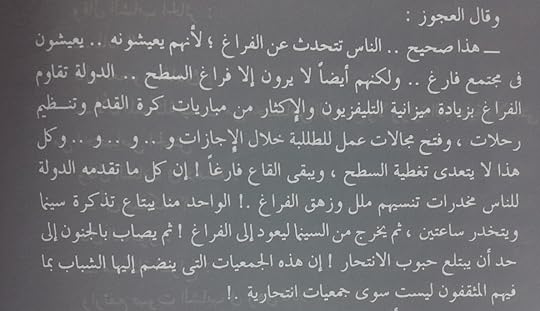 وقال العجوز :
ــ هذا صحيح .. الناس تتحدث عن الفراغ ؛ لأنهم يعيشونه .. يعيشون
فى مجتمع فارغ .. ولكنهم أيضاً لا يرون إلا فراغ السطح .. الدولة تقاوم
الفراغ بزيادة ميزانية التليفزيون والإكثار من مباريات كرة القدم وتنظيم
رحلات ، وفتح مجالات عمل للطلبة خلال الإجازات و .. و .. و .. وكل
هذا لا يتعدى تغطية السطح ، ويبقى القاع فارغاً ! إن كل ما تقدمه الدولة
للناس مخدرات تنسيهم ملل وزهق الفراغ .! الواحد منا يبتاع تذكرة سينما
ويتخدر ساعتين ، ثم يخرج من السينما ليعود إلى الفراغ ! ثم يصاب بالجنون إلى
حد أن يبتلع حبوب الانتحار ! إن هذه الجمعيات التى ينضم إليها الشباب بما
فيهم المثقفون ليست سوى جمعيات انتحارية .!